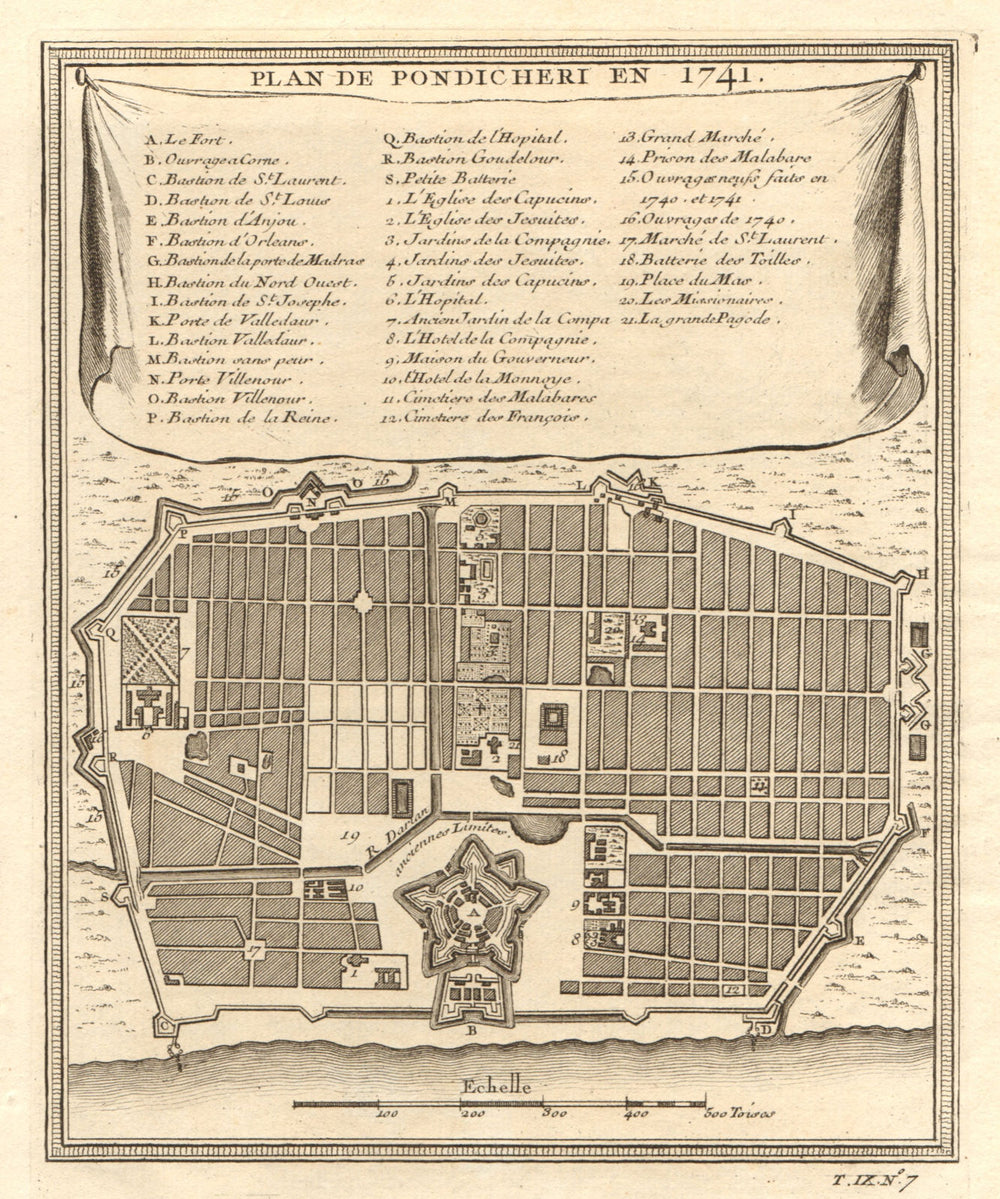 PLAN DE PONDICHERI EN 1741.
A. Le Fort.
B. Ouvrage a Corne.
C. Bastion de St. Laurent.
D. Bastion de St. Louis
E. Bastion d'Anjou.
F. Bastion d'Orleans.
G. Bastion de la porte de Madras
H. Bastion du Nord Ouest.
I. Bastion de St. Josephe.
K. Porte de Valledaur.
L. Bastion Valledaur.
M. Bastion sans peur.
N. Porte Villenour.
O. Bastion Villenour.
P. Bastion de la Reine.
Q. Bastion de l'Hopital.
R. Bastion Goudelour.
S. Petite Batterie
1. L'Eglise des Capucins.
2. L'Eglise des Jesuites.
3. Jardins de la Compagnie.
4. Jardins des Jesuites.
5. Jardins des Capucins.
6. L'Hopital.
7. Ancien Jardin de la Compa
8. L'Hotel de la Compagnie.
9. Maison du Gouverneur.
10. l'Hotel de la Monnoye.
11. Cimetiere des Malabares
12. Cimetiere des François.
13. Grand Marché.
14. Prison des Malabare
15. Ouvrages neufs faits en
1740. et 1741.
16. Ouvrages de 1740.
17. Marché de St. Laurent.
18. Batterie des Toilles.
19. Place du Mas.
20. Les Missionaires.
21. La grande Pagode.
O
N
O
15
16
N
M
L
16
K
I
P
H
15
3
Q
7
20
13
14
G
15
6
2
21
18
G
R
11
15
19
R. Darian
anciennes Limites.
F
S
10
A
9
8
E
17
1
12
C
B
D
Echelle
100
200
300
400
500 Toises
T. IX. No. 7